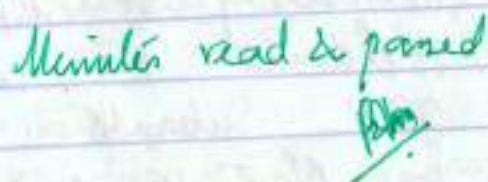 Minutes read & passed